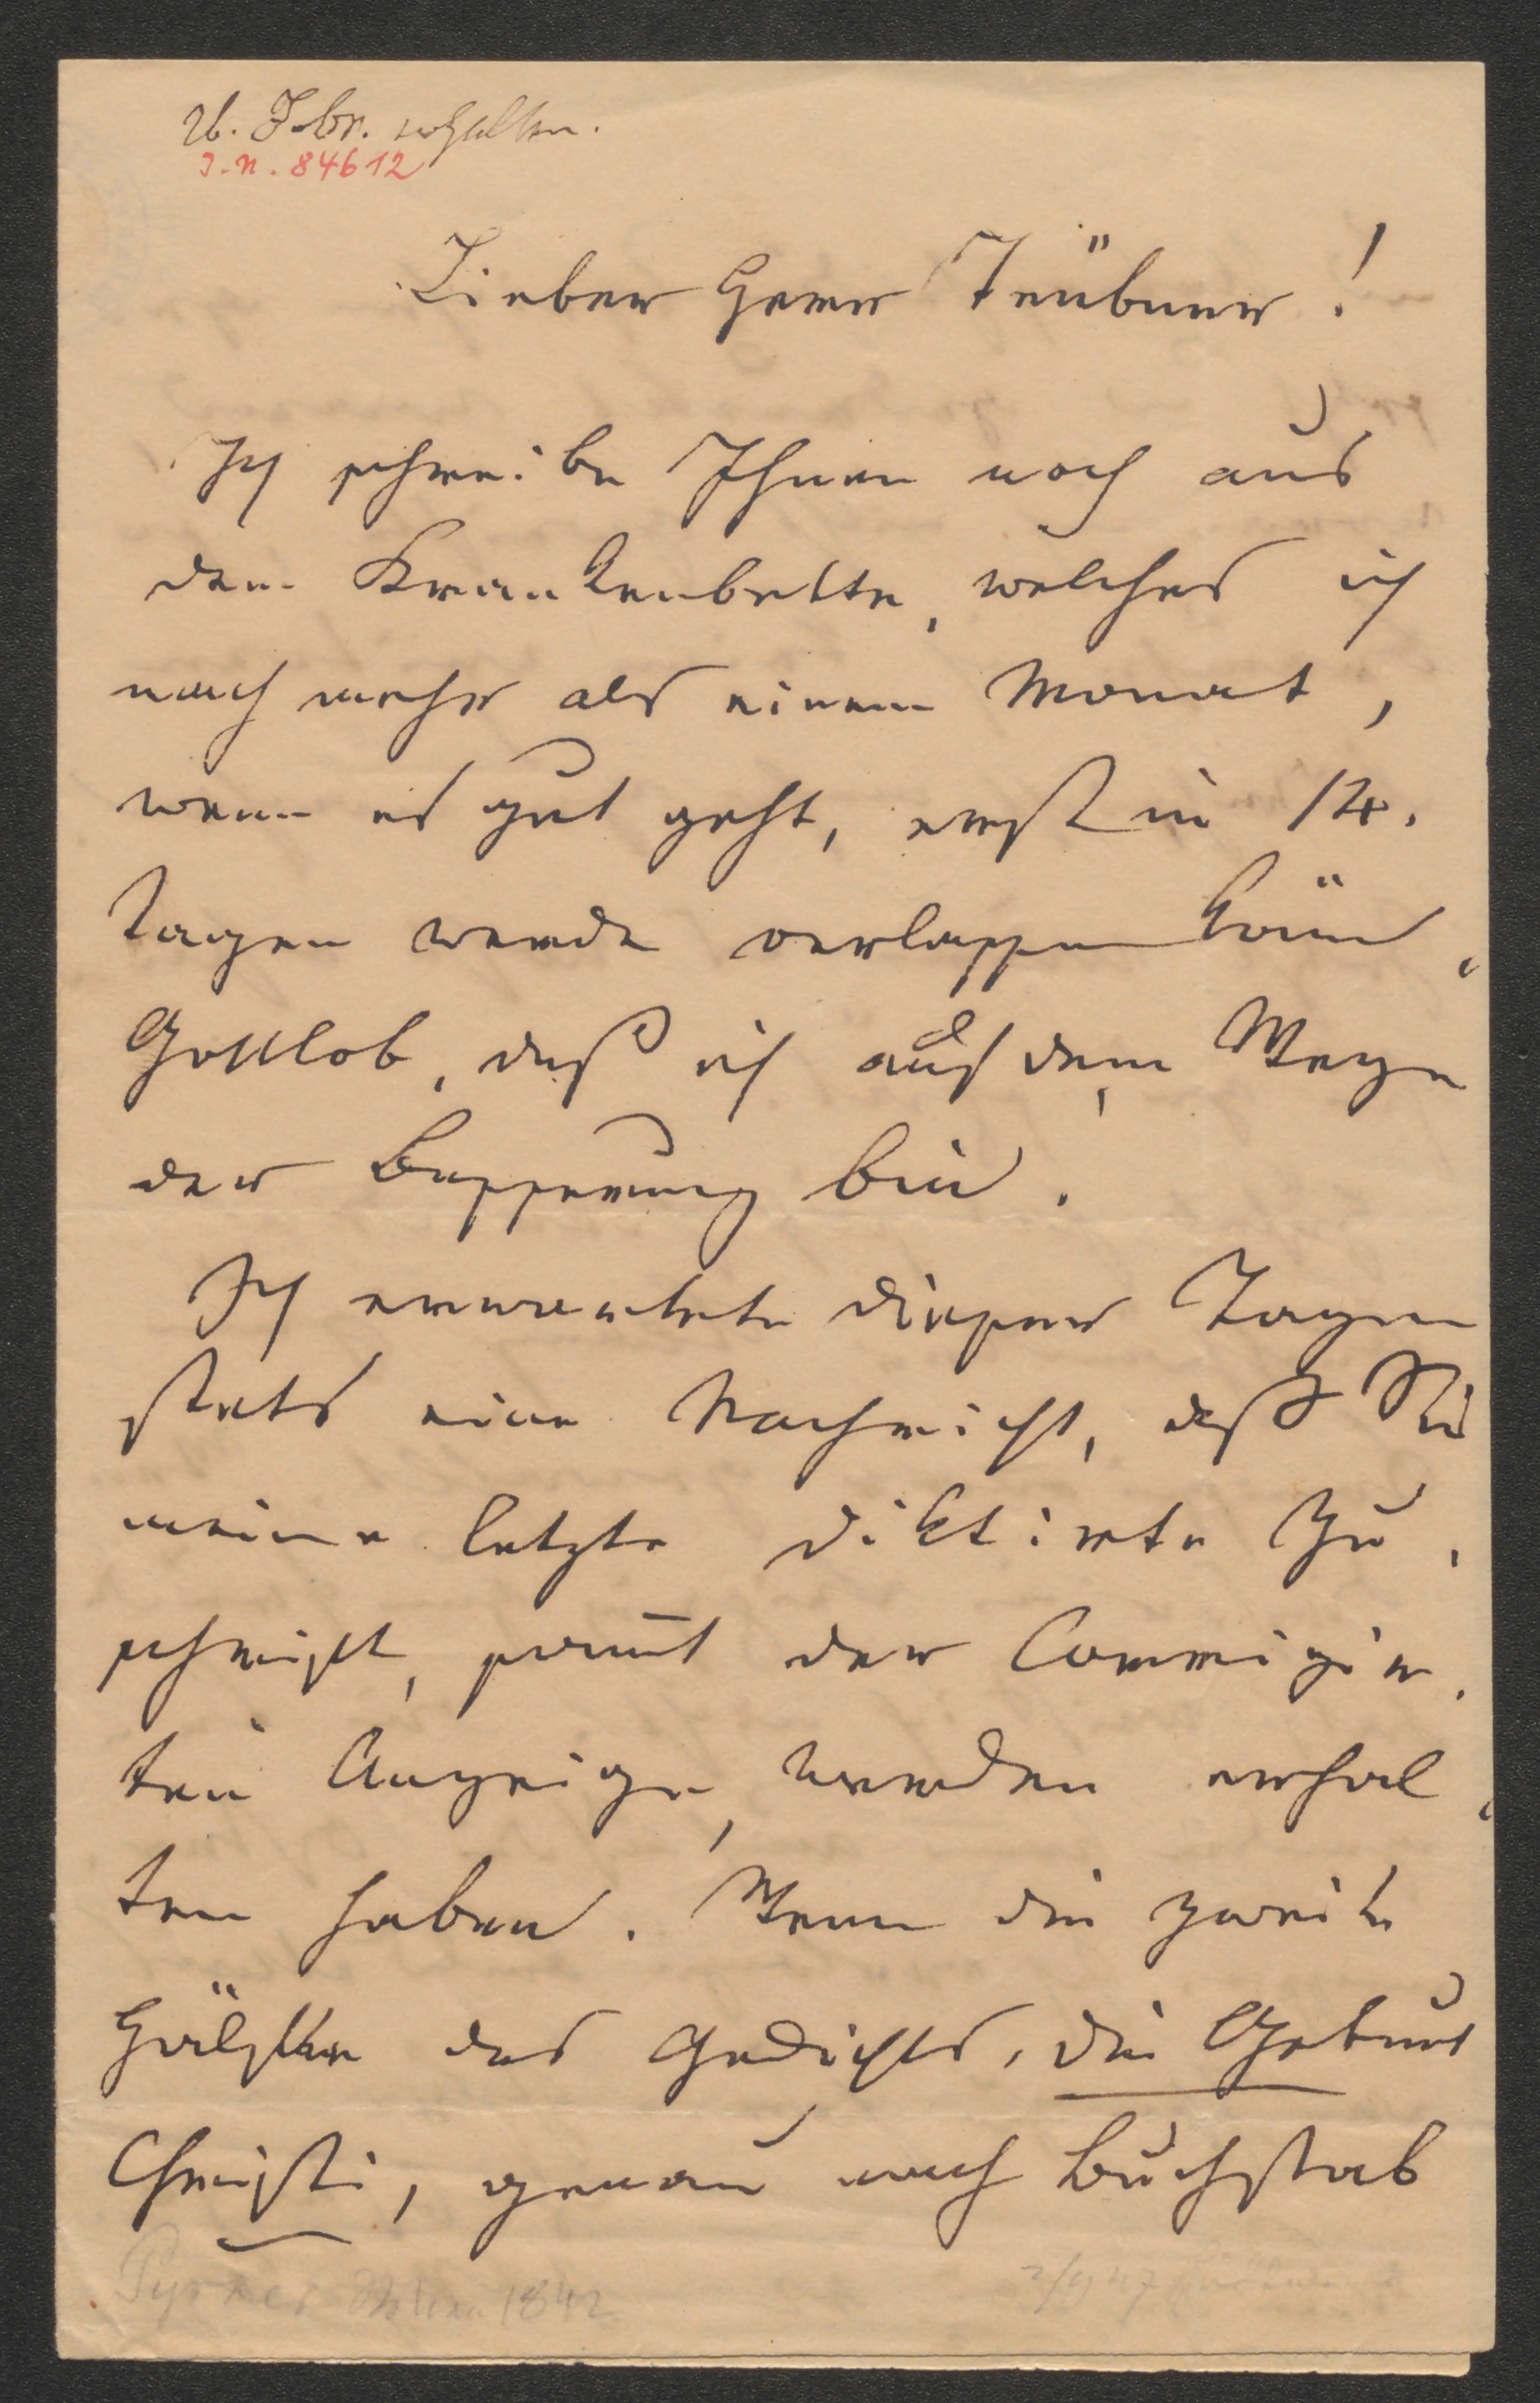 26. Febr. erhalten.
I.N. 84612
Lieber Herr Teubner!
Ich schreibe Ihnen noch aus
dem Krankenbette, welches ich
nach mehr als einem Monat,
wenn es gut geht, erst in 14.
Tagen werde verlassen könen,
Gottlob, daß ich auf dem Wege
der Besserung bin.
Ich erwartete dieser Tagen
stets eine Nachricht, daß Sie
meine letzte diktirte Zu,
schrift, samt der Corrigir,
ten Anzeige, werden erhal,
ten haben. Wenn die zweite
Hälfte des Gedichts, die Geburt
Christi, genau nach Buchstab
Pyrker Wien 1842